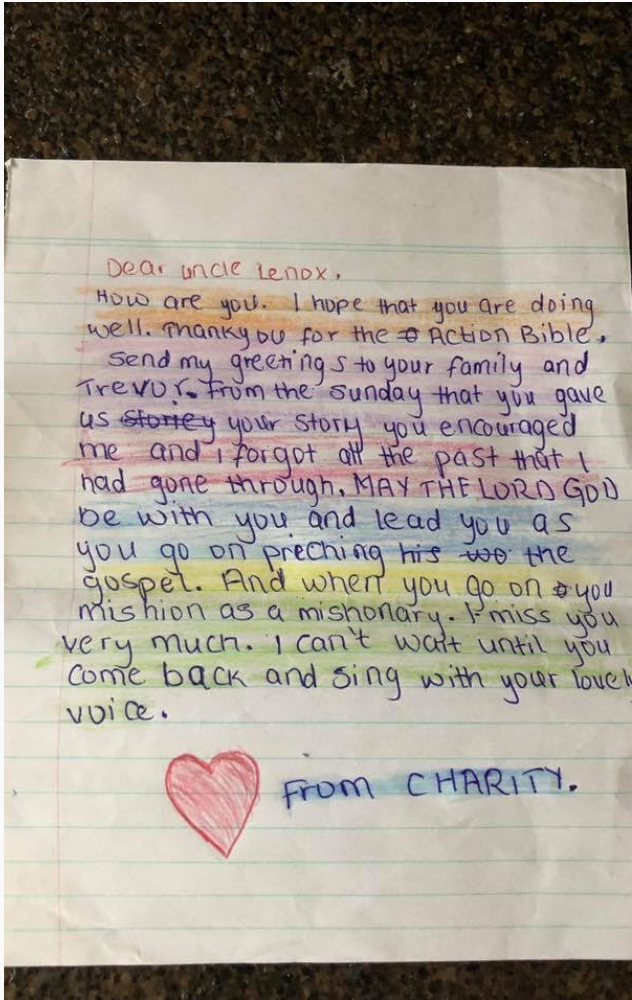 Dear uncle Lenox.
How are you. I hope that you are doing
well. Thankyou for the Action Bible.
Send my greetings to your family and
Trevor. From the Sunday that you gave
us storrey your story you encouraged
me and i forgot all the past that I
had gone through. MAY THE LORD GOD
be with you and lead you as
you go on preching his wo the
gospel. And when you go on you
mishion as a mishonary. I miss you
very much. I can't wait until you
come back and sing with your lovely
voice.
From CHARITY.